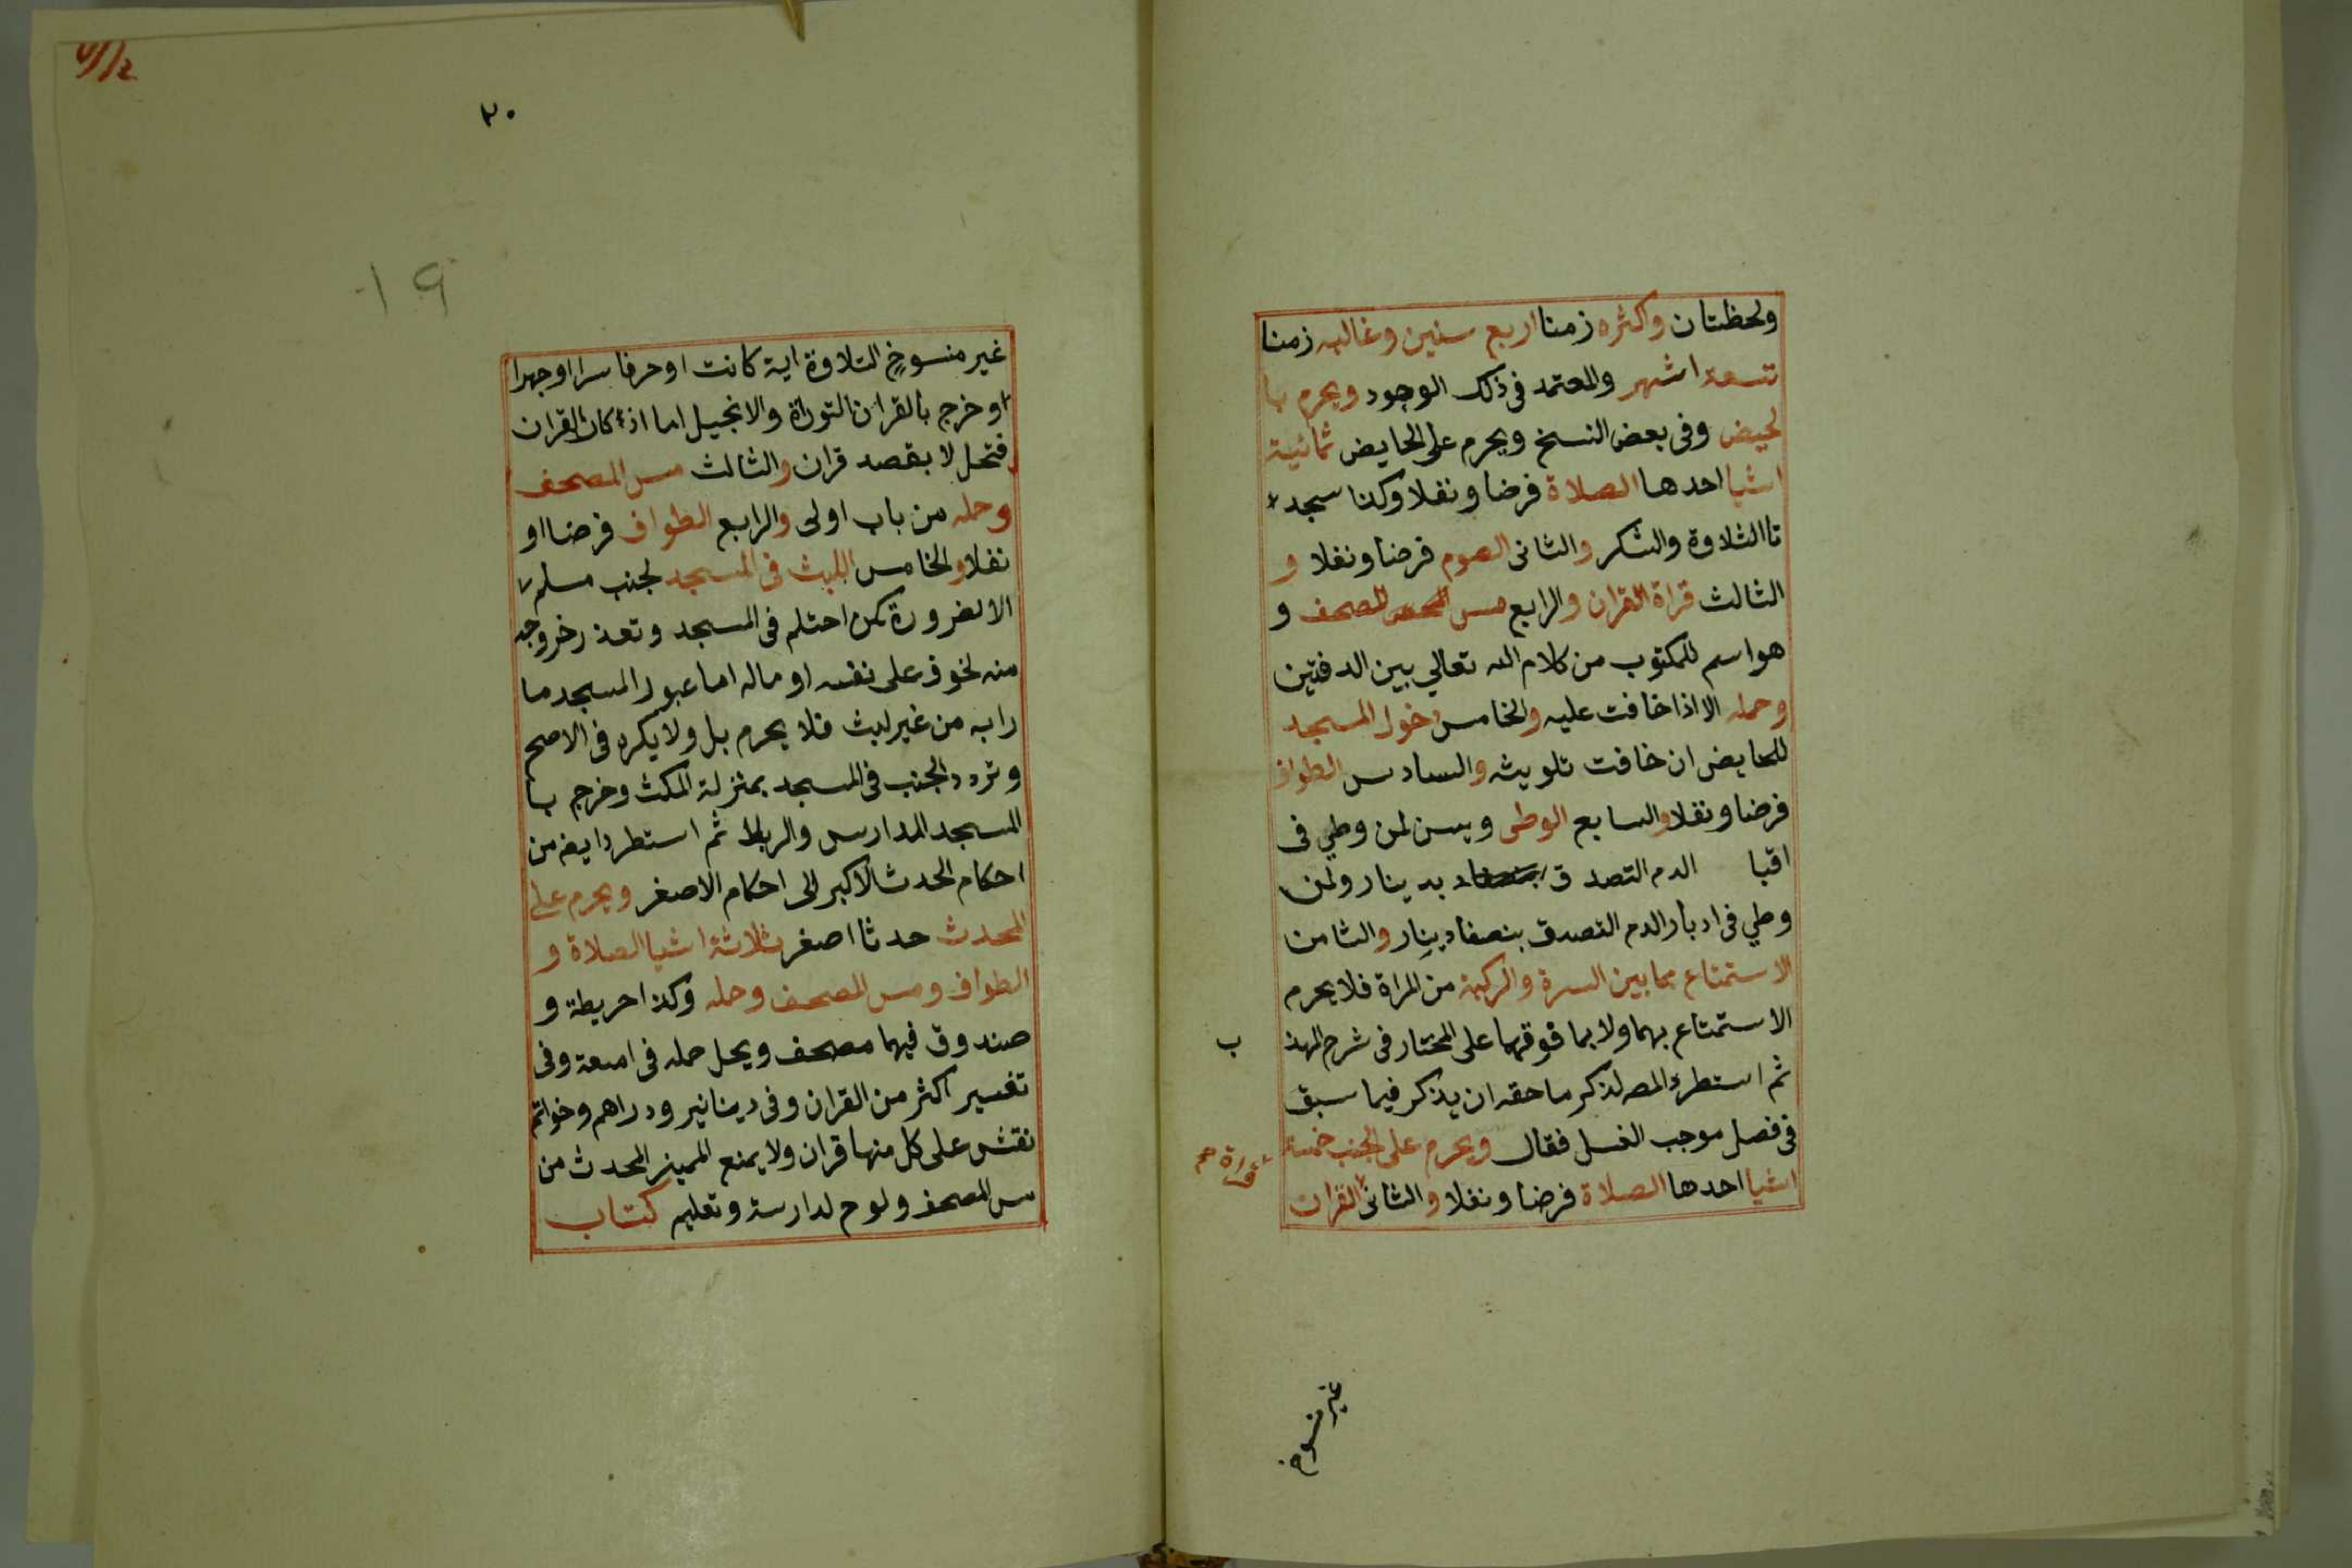 ولحظتان واكثره زمنا اربع سنين وغالبه زمنا
تسعة اشهر والمعتمد في ذلك الوجود ويحرم با
لحيض وفي بعض النسخ ويحرم على الحايض ثمانية
اشيا احدها الصلاة فرضا ونفلا وكذا سجد
تا التلاوة والشكر والثاني الصوم فرضا ونفلا و
الثالث قراة القران والرابع مس المصحف و
هو اسم للمكتوب من كلام الله تعالي بين الدفتين
وحمله الا اذا خافت عليه والخامس دخول المسجد
للحايض ان خافت تلويثه والسادس الطواف
فرضا ونفلا والسابع الوطى ويسن لمن وطي في
اقبا الدم التصدق بدينار ولمن
وطي في ادبار الدم التصدق بنصف دينار والثامن
الاستمتاع بما بين السرة والركبة من المراة فلا يحرم
الاستمتاع بهما ولا بما فوقهما على المختار في شرح المهذ
ب
ثم استطرد المص لذكر ما حقه ان يذكر فيما سبق
في فصل موجب الغسل فقال ويحرم على الجنب خمسة
اشيا احدها الصلاة فرضا ونفلا والثاني القران
قراة صح
غير منسوخ
٢٠
19
غير منسوخ التلاوة اية كانت او حرفا سرا او جهرا
او خرج بالقران التوراة والانجيل اما اذكار القران
فتحل لا بقصد قران والثالث مس المصحف
وحمله من باب اولى والرابع الطواف فرضا او
نفلا والخامس اللبث في المسجد لجنب مسلم
الا لضرورة كمن احتلم في المسجد وتعذر خروجه
منه لخوف على نفسه او ماله اما عبور المسجد ما
را به من غير لبث فلا يحرم بل ولا يكره في الاصح
وتردد الجنب في المسجد بمنزلة المكث وخرج با
المسجد المدارس والربط ثم استطرد ايض من
احكام الحدث الاكبر الى احكام الاصغر ويحرم على
المحدث حدثا اصغر ثلاثة اشيا الصلاة و
الطواف ومس المصحف وحمله وكذا خريطة و
صندوق فيهما مصحف ويحل حمله في امتعة وفي
تفسير اكثر من القران وفي دينانير ودراهم وخواتم
نقش على كل منها قران ولا يمنع المميز المحدث من
مس المصحف ولوح لدارسة وتعليم كتاب